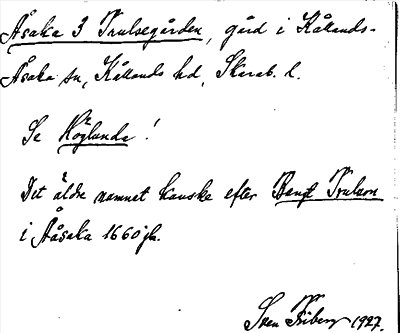 Åsaka 3 Trulsegården, gård i Kållands-
Åsaka sn, Kållands hd, Skarab. l.
Se Höglunda!
Det äldre namnet kanske efter Bengt Trulson
i Åsaka 1660jb.
Sven Friberg 1927.